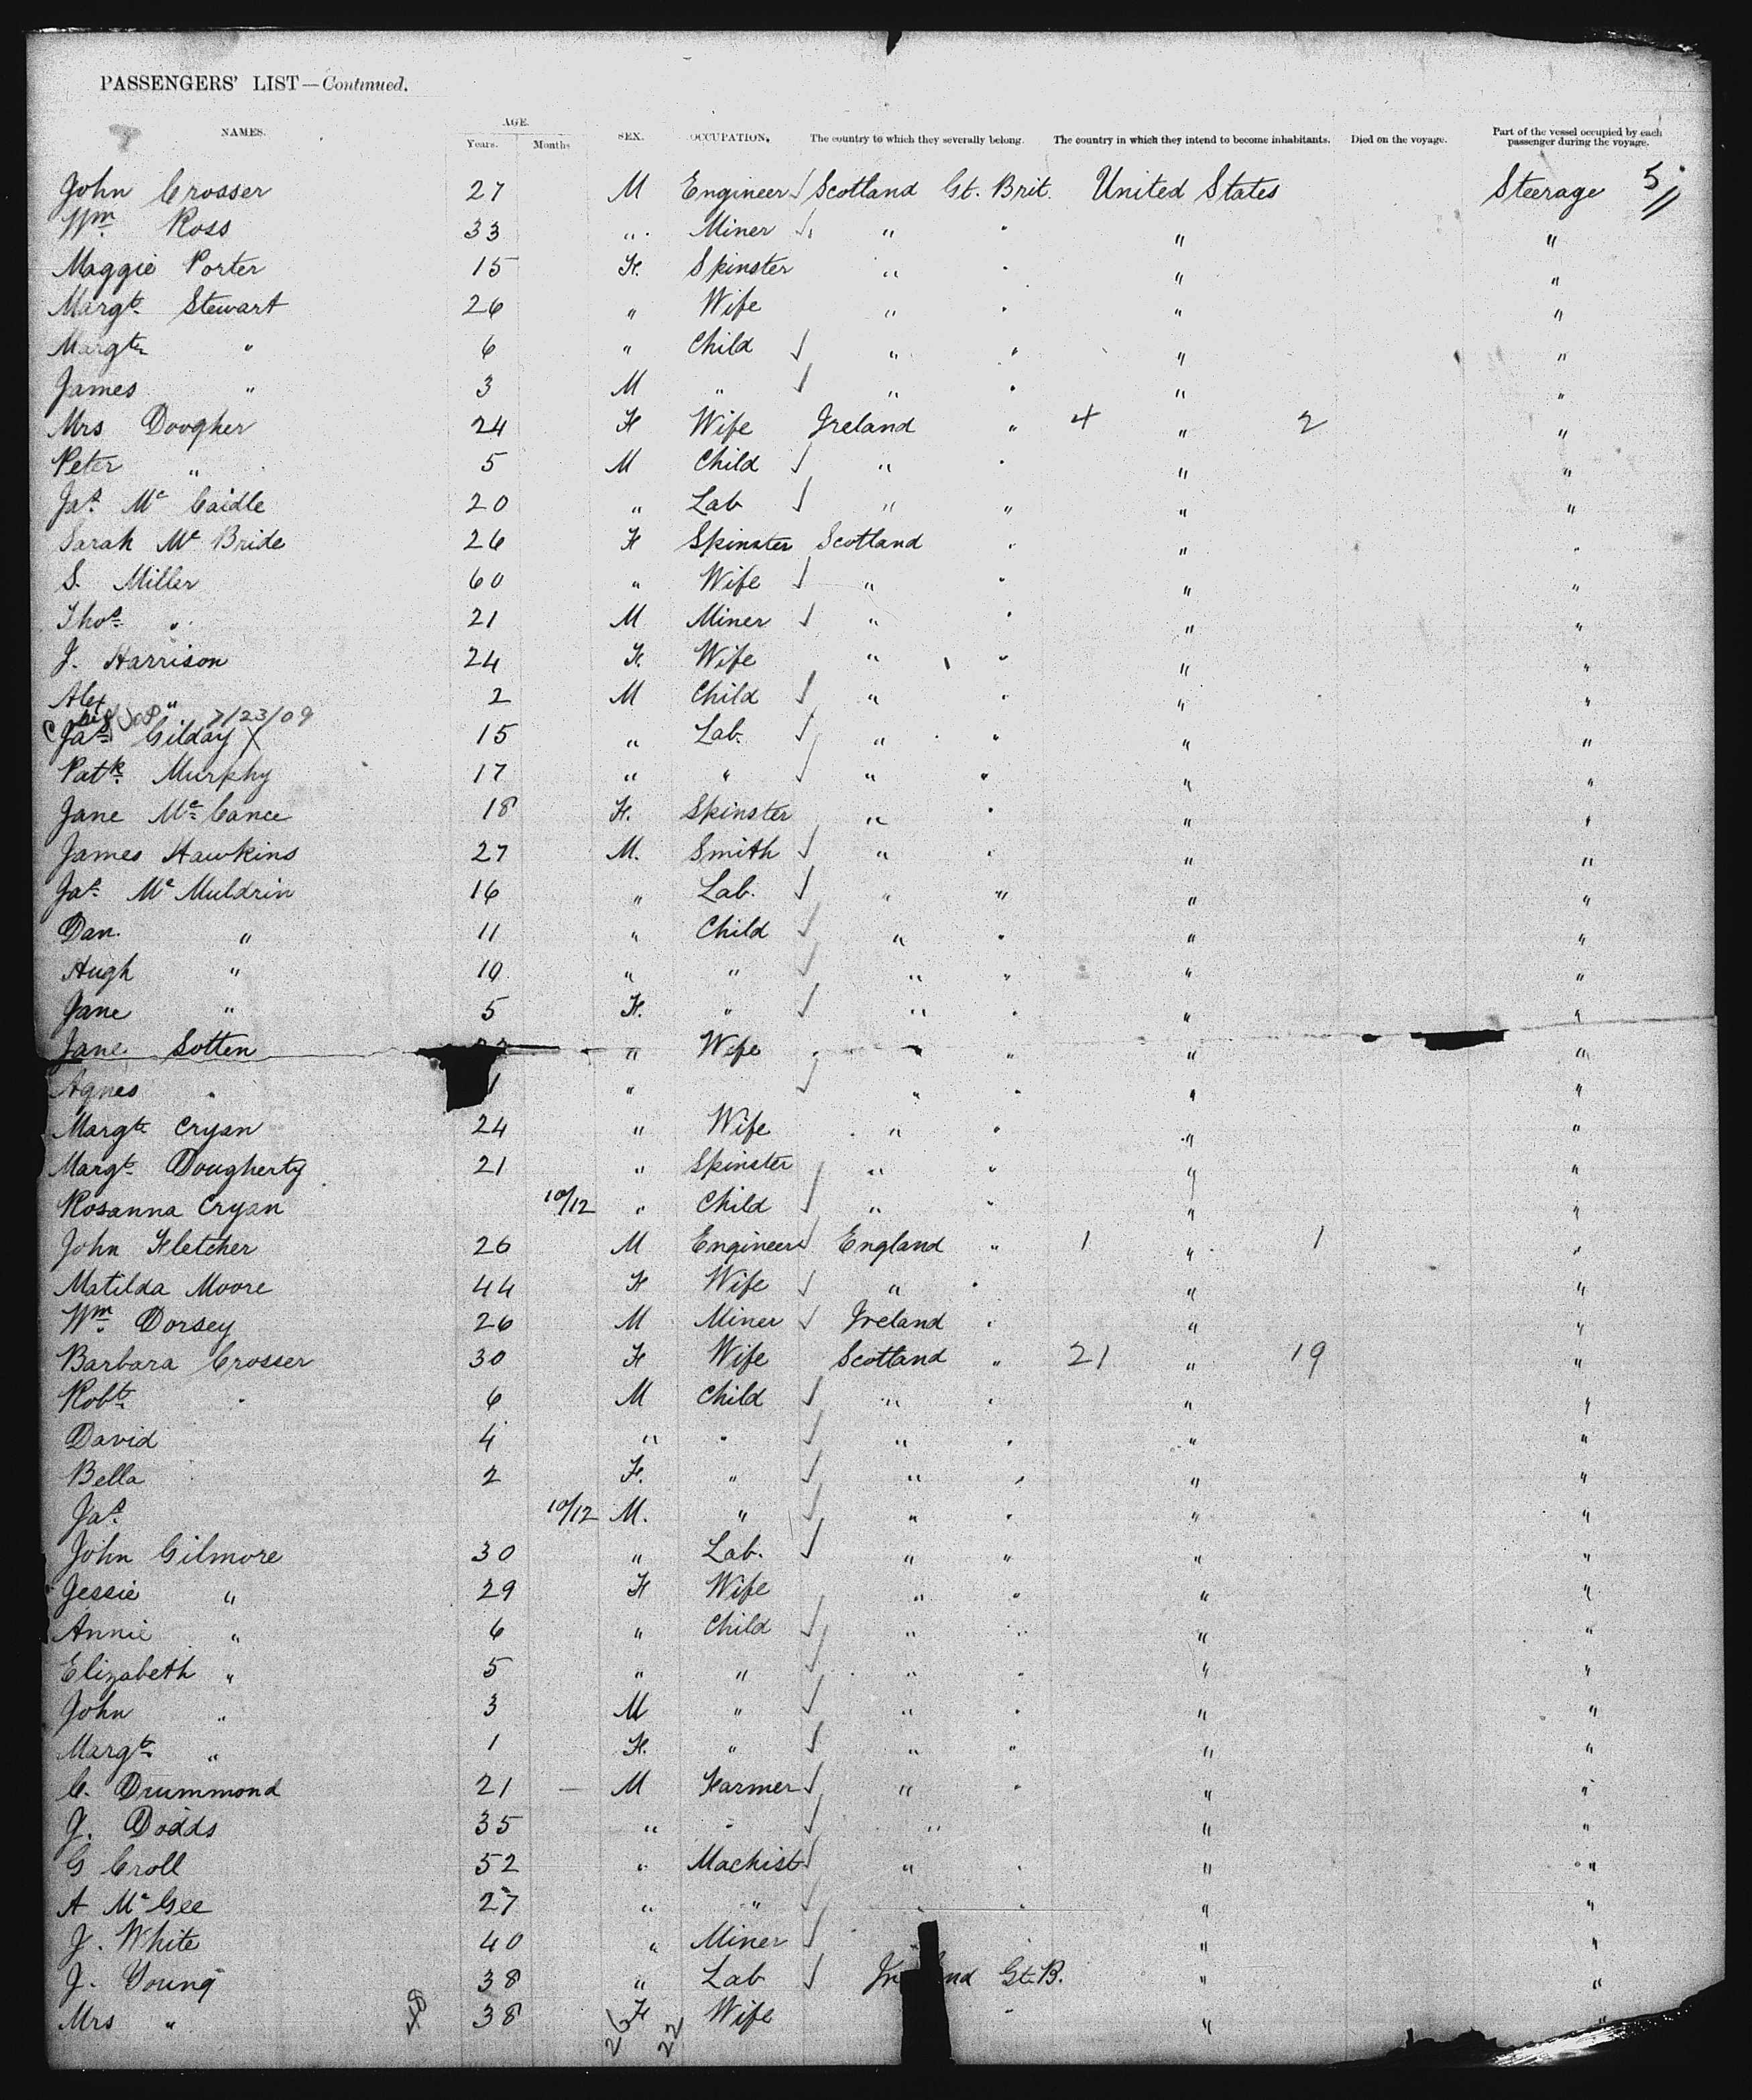 PASSENGERS' LIST—Continued.
NAMES. AGE. Years. Months SEX. OCCUPATION. The country to which they severally belong. The country in which they intend to become inhabitants. Died on the voyage. Part of the vessel occupied by each passenger during the voyage.
John Crosser 27 M Engineer Scotland Gt. Brit. United States Steerage 5
Wm. Ross 33 " Miner " " " "
Maggie Porter 15 F. Spinster " " " "
Margt. Stewart 26 " Wife " " " "
Margt. " 6 " Child " " " "
James " 3 M " " " " "
Mrs Doogher 24 F Wife Ireland " 4 " 2 "
Peter " 5 M Child " " " "
Jas. Mc Caidle 20 " Lab " " " "
Sarah Mc Bride 26 F Spinster Scotland " " "
S. Miller 60 " Wife " " " "
Thos. " 21 M Miner " " " "
J. Harrison 24 F. Wife " " " "
Alex " 2 M Child " " " "
7/23/09
Jas. Gilday X 15 " Lab. " " " "
Patk. Murphy 17 " " " " " "
Jane Mc Cance 18 F. Spinster " " " "
James Hawkins 27 M. Smith " " " "
Jas. Mc Muldrin 16 " Lab. " " " "
Dan. " 11 " Child " " " "
Hugh " 10 " " " " " "
Jane " 5 F. " " " " "
Jane Sotten " Wife " " " "
Agnes " 1 " " " " "
Margt. Cryan 24 " Wife " " " "
Margt. Dougherty 21 " Spinster " " " "
Rosanna Cryan 10/12 " Child " " " "
John Fletcher 26 M Engineer England " 1 " 1 "
Matilda Moore 44 F Wife " " " "
Wm. Dorsey 26 M Miner Ireland " " "
Barbara Crosser 30 F Wife Scotland " 21 " 19 "
Robt. " 6 M Child " " " "
David 4 " " " " " "
Bella 2 F. " " " " "
Jas. 10/12 M. " " " " "
John Gilmore 30 " Lab. " " " "
Jessie " 29 F Wife " " " "
Annie " 6 " Child " " " "
Elizabeth " 5 " " " " " "
John " 3 M " " " " "
Margt. " 1 F. " " " " "
C. Drummond 21 — M Farmer " " " "
J. Dodds 35 " " " " "
G Croll 52 " Machist " " " "
A McGee 27 " " " " " "
J. White 40 " Miner " "
J. Young 38 " Lab Ireland Gt. B. " "
Mrs " 48 38 F Wife " " "
26 22